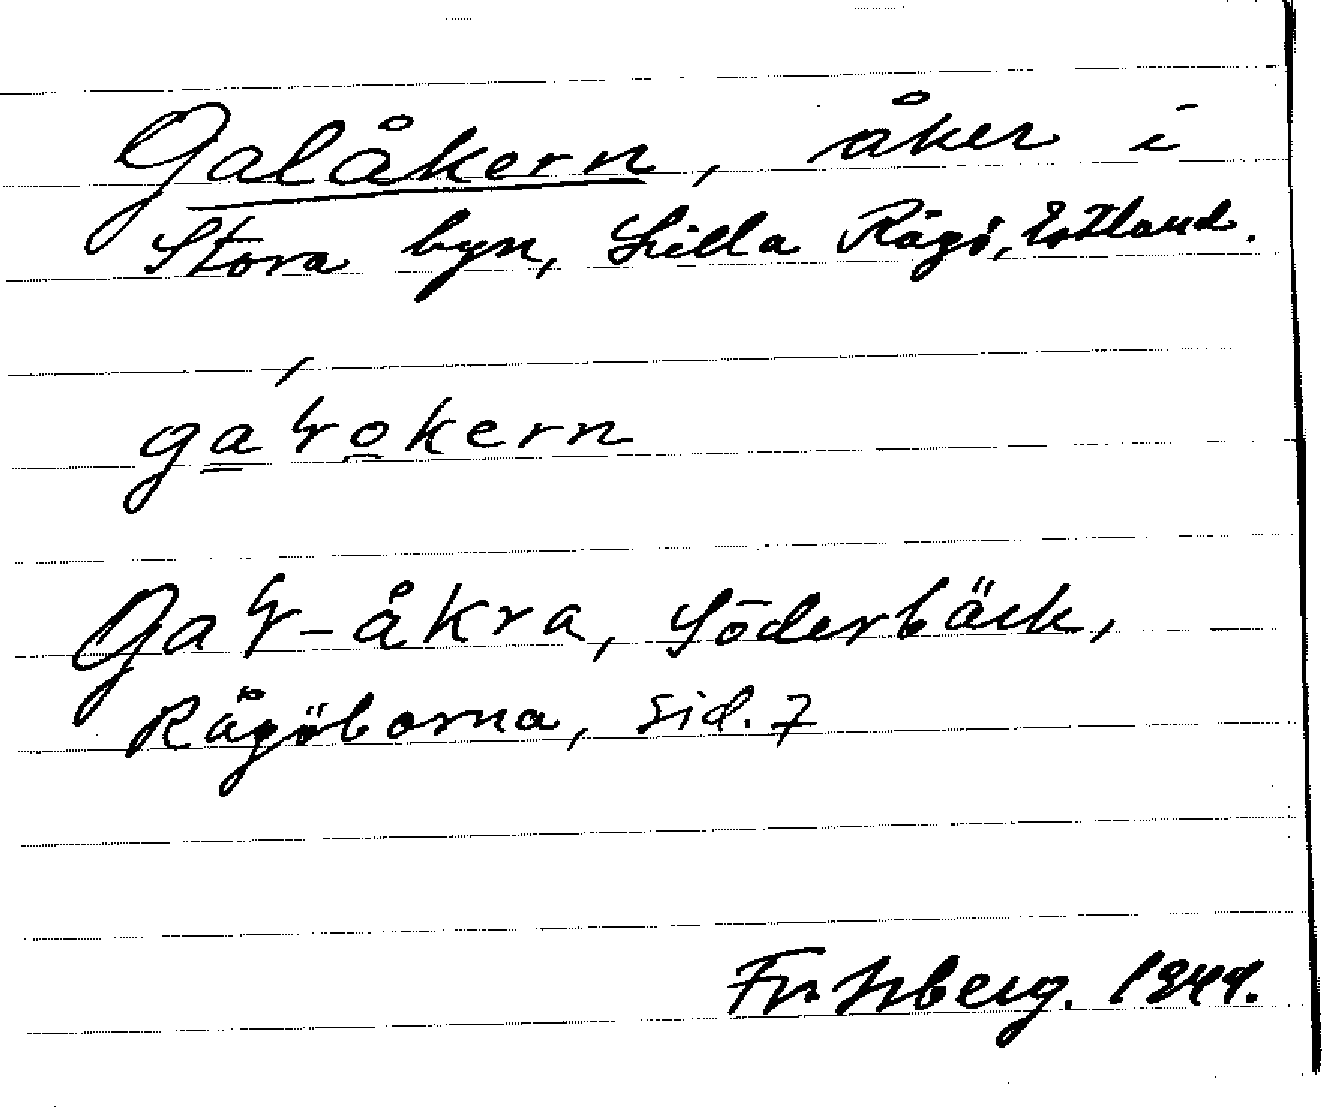 Galåkern, åker i
Stora byn, Lilla Rågö, Estland.
gaɽokern
Gaɽ-åkra, Söderbäck,
Rågöborna, sid. 7
1944.